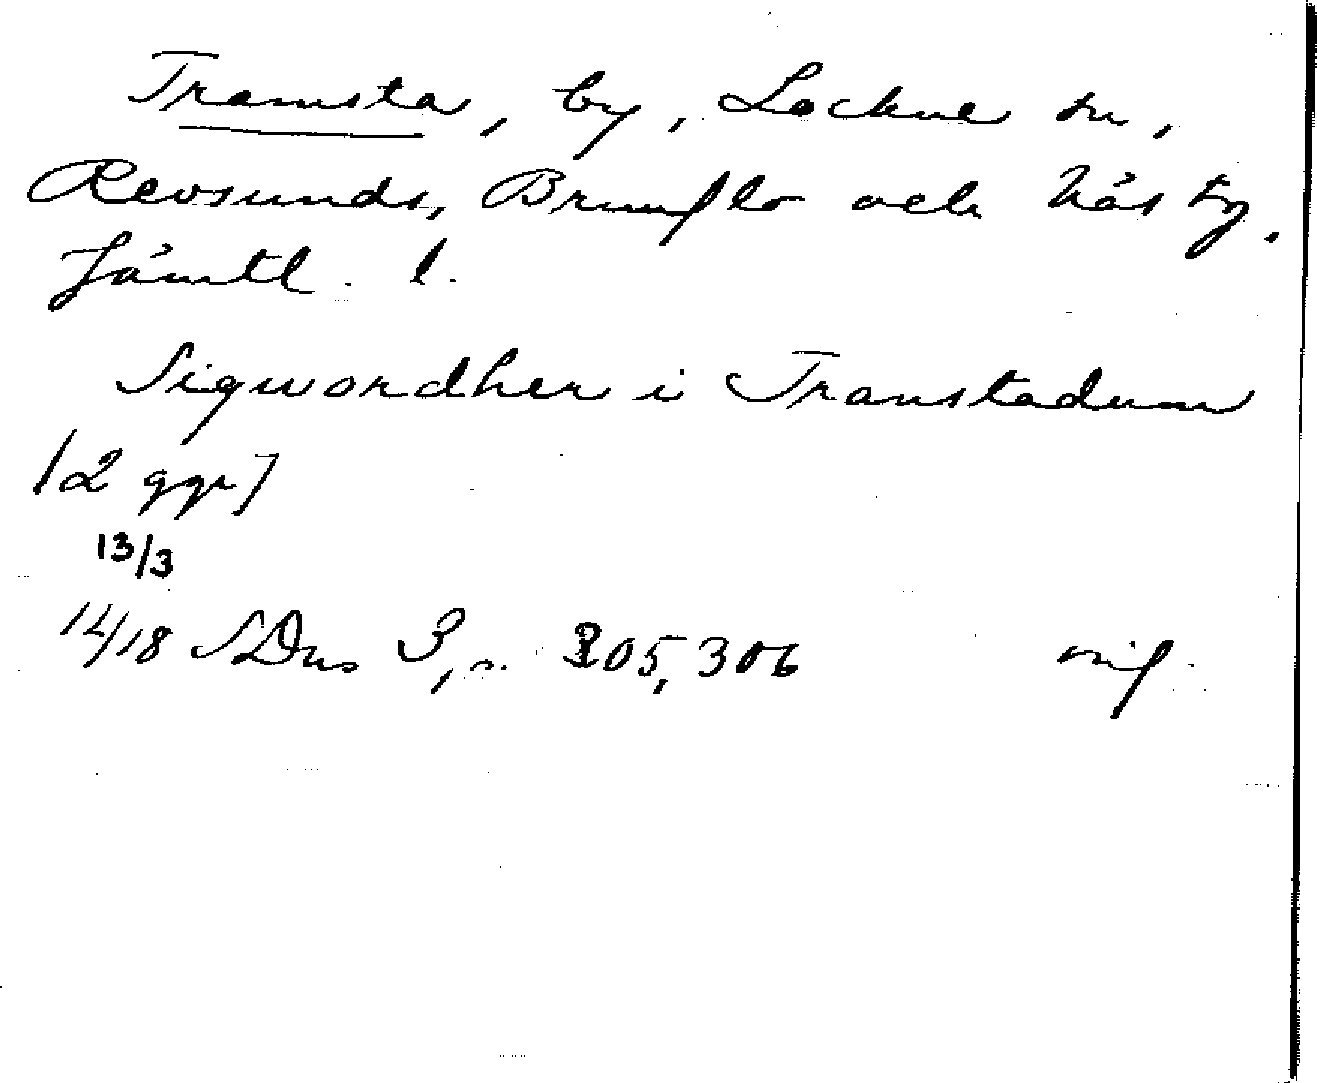 Tramsta, by, Lockne sn,
Revsunds, Brunflo och Näs tg.
Jämtl. l.
Sigwordher i Transtadum
[2 ggr]
13/3
14/18 SDns 3, s. 305, 306 orig.